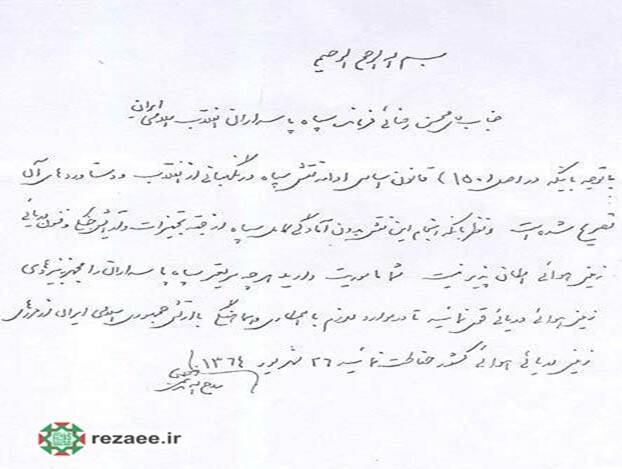 بسم الله الرحمن الرحیم
جناب آقای محسن رضائی فرمانده سپاه پاسداران انقلاب اسلامی ایران
با توجه باینکه در اصل (۱۵۰) قانون اساسی ادامه نقش سپاه در نگهبانی از انقلاب و دستاوردهای آن
تصریح شده است و نظر باینکه انجام این نقش بدون آمادگی کامل سپاه از جهت تجهیزات و فنون دریائی
زمینی هوائی امکان پذیر نیست شما ماموریت دارید هر چه سریعتر سپاه پاسداران را مجهز به نیروی
زمینی هوائی دریائی قوی نمائید تا در موارد لازم با همکاری و هماهنگی با ارتش جمهوری اسلامی ایران از مرزهای
زمینی دریائی هوائی کشور حفاظت نمائید ۲۶ شهریور ۱۳۶۴
روح الله الموسوی الخمینی
rezaee.ir